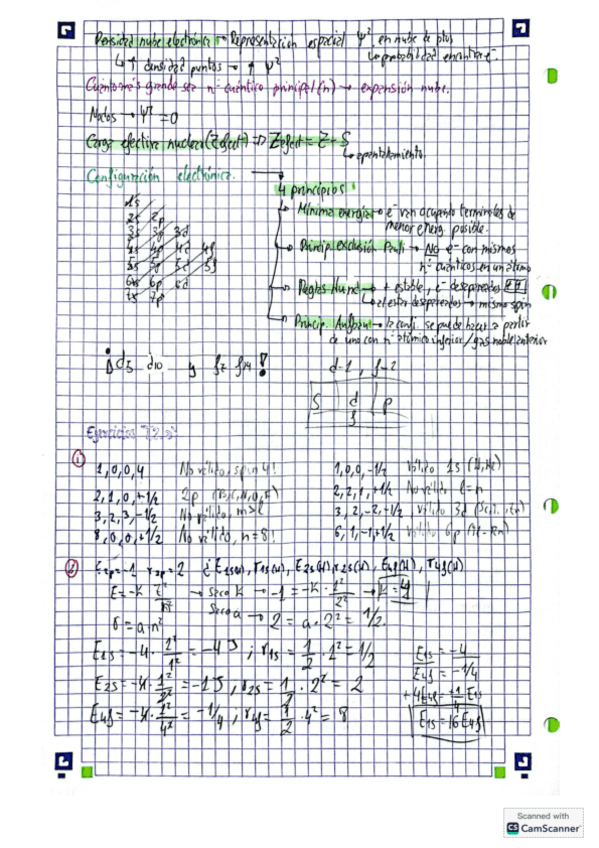 Densidad nube electrónica → Representación espacial Ψ² en nube de ptos
↳ ↑ densidad puntos → ↑ Ψ² ↳ probabilidad encontrar e⁻
Cuanto más grande sea nº cuántico principal (n) → expansión nube.
Nodos → Ψ² = 0
Carga efectiva nuclear (Zefect) => Zefect = Z - S
↳ apantallamiento
Configuración electrónica.
4 principios
1s
2s 2p
3s 3p 3d
4s 4p 4d 4f
5s 5p 5d 5f
6s 6p 6d
7s 7p
Mínima energía → e⁻ van ocupando terminales de
menor energ. posible.
Princip. exclusión Pauli → NO e⁻ con mismos
nº cuánticos en un átomo
Reglas Hund → + estable, e⁻ desapareados
↳ al estar desapareados → mismo spin
Princip. Aufbau → la confi. se puede hacer a partir
de uno con nº atómico inferior / gas noble anterior
¡d5 d10 y f7 f14!
d-1, f-2
S d p
f
Ejercicios
① 1,0,0,4 No válido, spin 4!
2,1,0,+1/2 2p
3,2,3,-1/2 No válido, m>l
8,0,0,+1/2 No válido, n=8!
1,0,0,-1/2 Válido 1s (H,He)
2,2,1,+1/2 No válido l=n
3,2,-2,-1/2, válido 3d
6,1,-1,+1/2 válido 6p (Tl-Rn)
E2p=-1 r2p=2 ¿E1s(H), r1s(H), E2s(H), r2s(H), E4f(H), r4f(H)
E=-K Z²/n² → Saco K → -1 = -K · 1²/2² → K=4
r = a·n² Saco a → 2 = a·2² = 1/2.
E1s = -4 · 1²/1² = -4 J ; r1s = 1/2 · 1² = 1/2
E2s = -4 · 1²/2² = -1 J, r2s = 1/2 · 2² = 2
E4f = -4 · 1²/4² = -1/4 ; r4f = 1/2 · 4² = 8
E1s = -4
E4f = -1/4
+4E4f = +1/4 E1s
E1s = 16 E4f
Scanned with
CS CamScanner